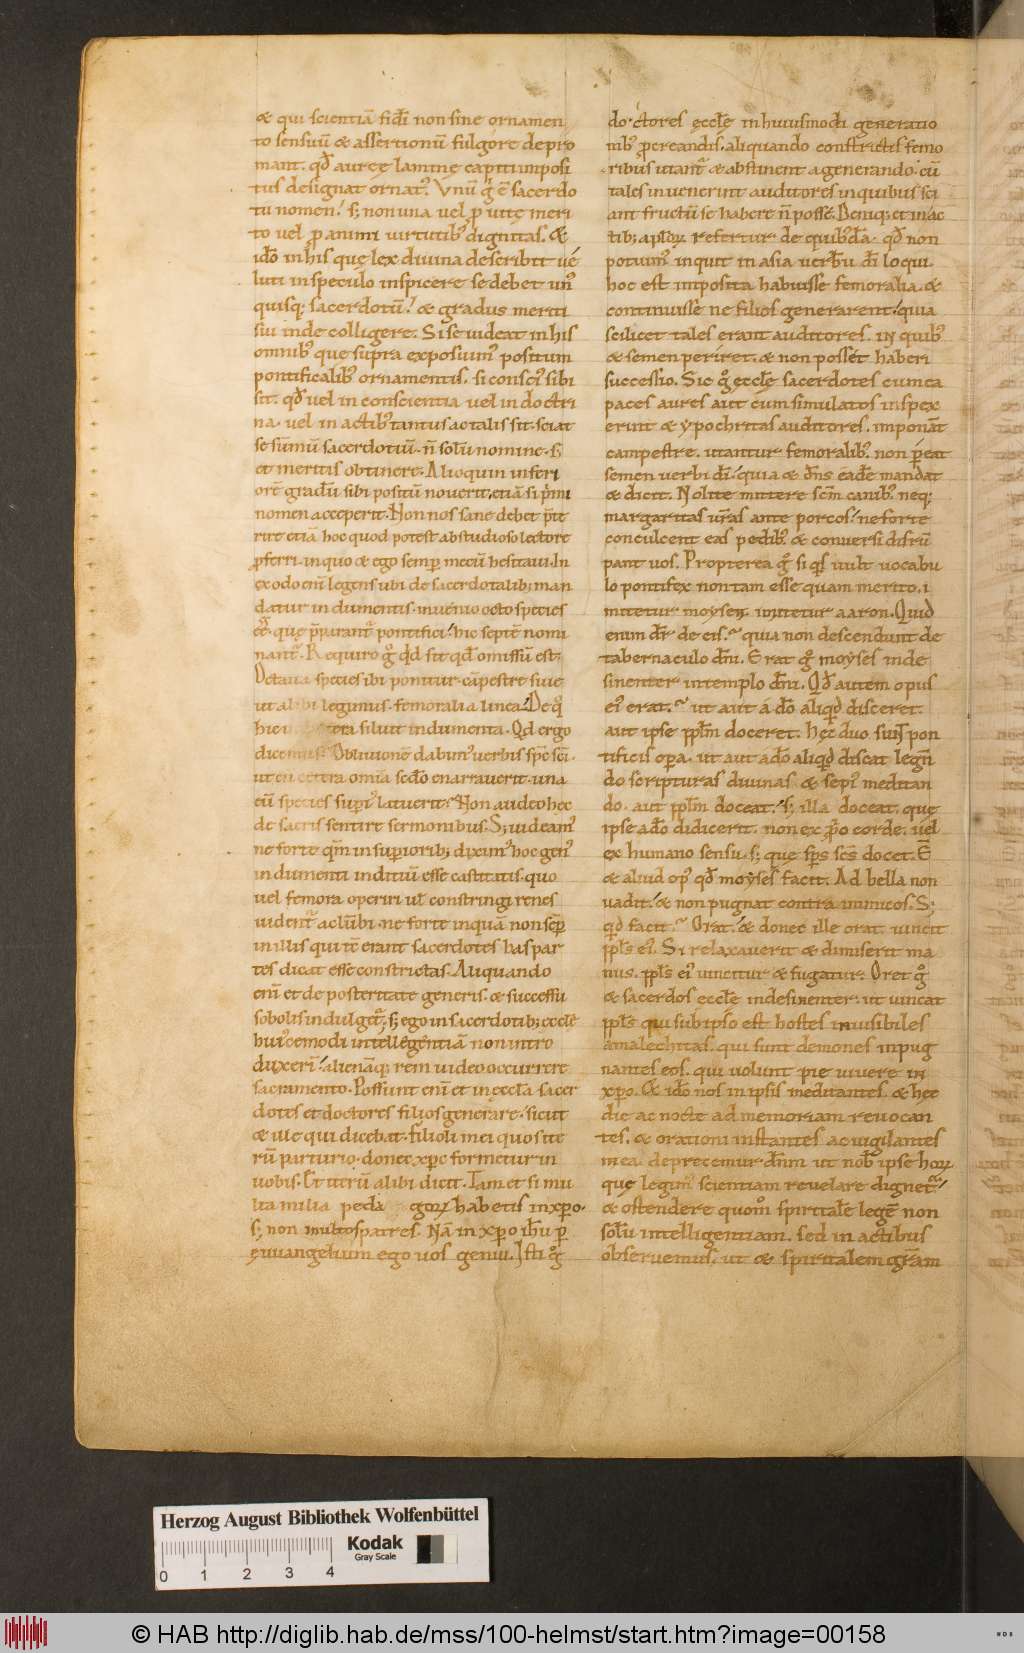 & qui scientiā fidī non sine ornamen
to sensuū & assertionū fulgore depro
mant. qđ auręe laminę capiti imposi
tus designat ornatꝰ. Vnū g̊ ē sacerdo
tii nomen. s; non una uel ꝓ uitę meri
to uel ꝓ animi uirtutibꝰ dignitas. &
ideo in his quę lex diuina describit ue
luti in speculo inspicere se debet unꝰ
quisq; sacerdotū. & gradus meriti
sui inde colligere. Si se uideat in his
omnibꝰ que supra exposuimꝰ positum
pontificalibꝰ ornamentis. si consciꝰ sibi
sit. qđ uel in conscientia uel in doctri
na. uel in actibꝰ tantus ac talis sit. sciat
se summū sacerdotiū. ñ solū nomine. s;
et meritis obtinere. Alioquin inferi
orē gradū sibi positū nouerit. etiā si p̄mi
nomen acceperit. Non nos sane debet p̄te
rire etiā hoc quod potest ab studioso lectore
ꝓferri. in quo & ego semp̄ mecū hesitaui. In
exodo enī legens ubi de sacerdotalib; man
datur indumentis. inuenio octo species
eē. quę p̄parantꝰ pontifici. hic septē nomi
nantꝰ. Requiro g̊ qđ sit qđ omissū est.
Octaua species ibi ponitur. cāpestre siue
ut alibi legimus. femoralia linea. De q̊
hic int cetera siluit indumenta. Qđ ergo
dicemus. Obliuionē dabimꝰ uerbis sp̄c sc̄i.
ut cū cetera omīa scdo enarrauerit. una
eū species supiꝰ latuerit. Non audeo hęc
de sacris sentire sermonibus. S; uideamꝰ
ne forte qm̄ in superiorib; diximꝰ hoc genꝰ
indumenti indiciū esse castitatis. quo
uel femora operiri uł constringi renes
uidentꝰ ac lūbi. ne forte inquā non semp̄
in illis qui tē erant sacerdotes has par
tes dicat esse constrictas. Aliquando
enī et de posteritate generis. & successu
sobolis indulget. s; ego in sacerdotib; ęcclę
huiꝰcemodi intellegentiā non intro
duxerī. alienāq; rem uideo occurrere
sacramento. Possunt enī et in ęccla sacer
dotes et doctores filios generare. sicut
& ille qui dicebat. filioli mei quos ite
rū parturio. donec xp̄c formetur in
uobis. Et iterū alibi dicit. Iam et si mu
lta milia peda gogorꝝ habetis in xp̄o.
s; non multos patres. Nā in xp̄o ihū p̄
euuangelium ego uos genui. Isti g̊
do ctores ęcclę in huiusmodi generatio
nibꝰ p̄creandis. aliquando constrictis femo
ribus utantꝰ & abstinent a generando. cū
tales inuenerint auditores in quibus sci
ant fructū se habere ñ posse. Deniq; et in ac
tib; aplorꝝ refertur de quibꝰdā. qđ non
potuimꝰ inquit in asia uerbū dī loqui.
hoc est imposita habuisse femoralia. &
continuisse ne filios generarent. quia
scilicet tales erant auditores. in quibꝰ
& semen periret. & non posset haberi
successio. Sic g̊ ęcclę sacerdotes cum ca
paces aures aut cum simulatos inspex
erint & ypochritas auditores. imponāt
campestre. utantur femoralibꝰ. non p̄eat
semen uerbi dī. quia & dn̄s eadē mandat
& dicit. Nolite mittere scm̄ canibꝰ. neq;
margaritas ur̄as ante porcos. ne forte
conculcent eas pedibꝰ. & conuersi disrū
pant uos. Propterea g̊ si qs uult uocabu
lo pontifex non tam esse quam merito. i
mitetur moysen. imitetur aaron. Quid
enim dr̄ de eis. quia non descendunt de
tabernaculo dn̄i. Erat g̊ moyses inde
sinenter in templo dn̄i. Qđ autem opus
eiꝰ erat. ut aut a do aliqđ disceret.
aut ipse ppłm doceret. hęc duo sunt pon
tificis opera. ut aut ado aliqđ discat legen̄
do scripturas diuinas & sepiꝰ meditan
do. aut ppłm doceat. s; illa doceat. que
ipse a do didicerit. non ex p̄prio corde. uel
ex humano sensu. s; que sp̄s scs docet. Ē
& aliud opꝰ qđ moyses facit. Ad bella non
uadit. & non pugnat contra inimicos. S;
qđ facit. Orat. & donec ille orat. uincit
ppłs eiꝰ. Si relaxauerit & dimiserit ma
nus. ppłs eiꝰ uincitur & fugatur. Oret g̊
& sacerdos ęcclę indesinenter. ut uincat
ppłs qui sub ipso est hostes inuisibiles
amalechitas. qui sunt demones inpug
nantes eos. qui uolunt pie uiuere in
xp̄o. & ideo nos in ipsis meditantes. & hęc
die ac nocte ad memoriam reuocan
tes. & orationi instantes ac uigilantes
in ea. deprecemur. dn̄m ut nob ipse horꝝ
quę legimꝰ scientiam reuelare dignetꝰ.
& ostendere quom̊ spiritalē legē non
solū intelligentiam. sed in actibus
obseruemus. ut & spiritalem gr̄am
Herzog August Bibliothek Wolfenbüttel
Kodak
Gray Scale
0 1 2 3 4
© HAB http://diglib.hab.de/mss/100-helmst/start.htm?image=00158